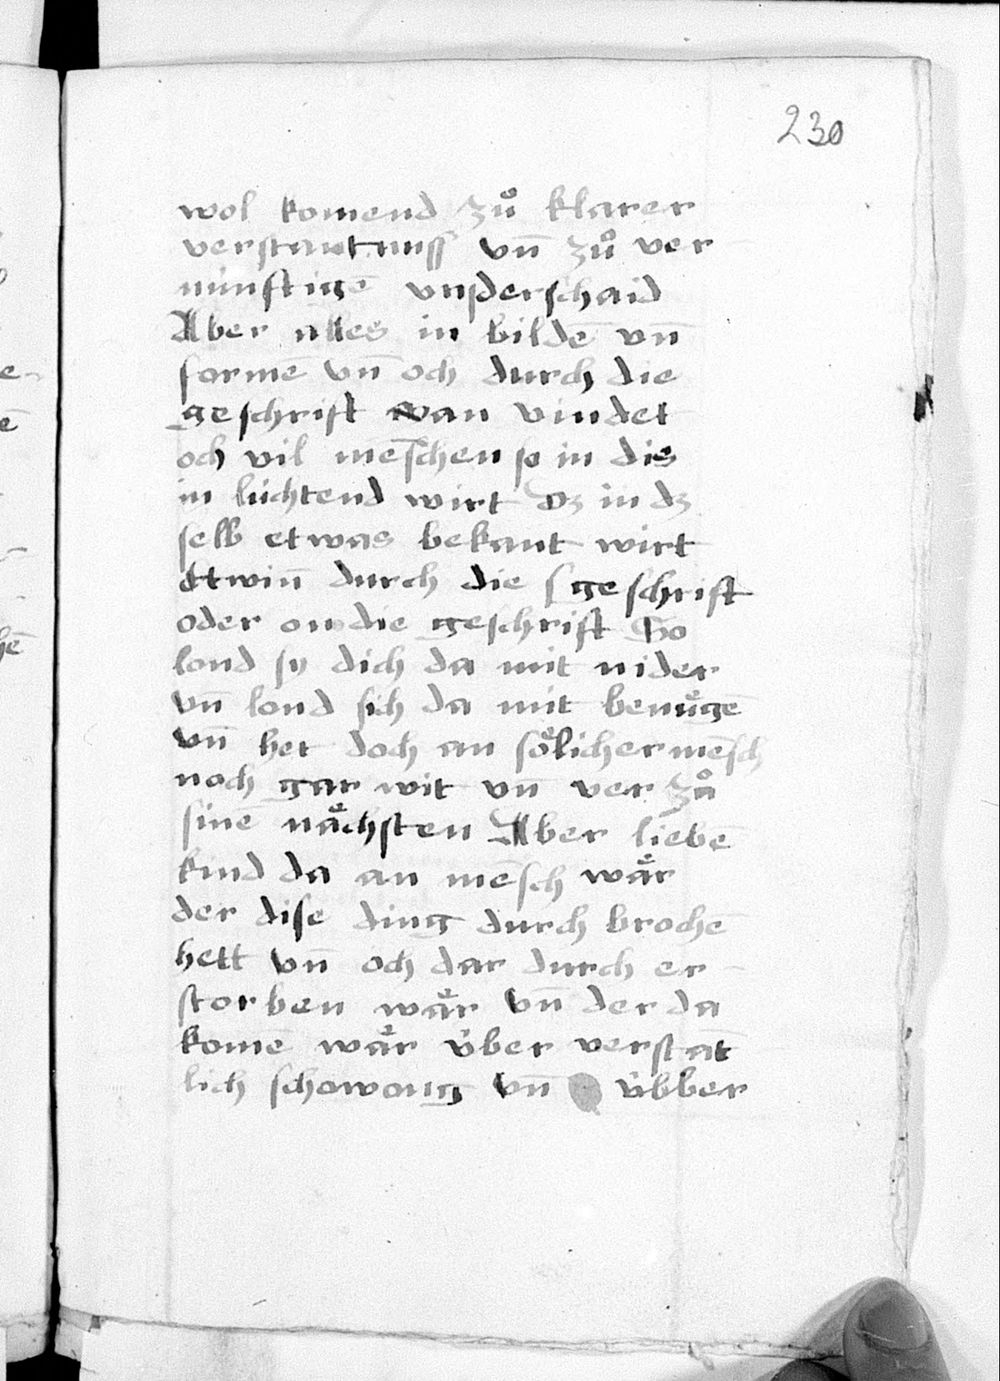 230
wol komend zuͦ klarer
verstantnuſſ vn̄ zuͦ ver
núnftigē vnderſchaid
Aber alles in bildē vn̄
formē vn̄ och durch die
geſchrift wan vindet
och vil mēſchen ſo in dis
in lúchtend wirt dʒ in dʒ
ſelb etwas bekant wirt
Ettwin̄ durch die ſ geſchrift
oder on die geſchrift So
lond ſy dich da mit nider
vn̄ lond ſich da mit benuͤgē
vn̄ het doch an ſoͤlicher mēſch
noch gar wit vn̄ ver zuͦ
ſinē naͤchſten Aber liebē
kind da an mēſch waͤr
der diſe ding durch brochē
hett vn̄ och dar durch er
ſtorben waͤr vn̄ der da
komē waͤr v́ber verſtāt
lich ſchowong vn̄ v́bber